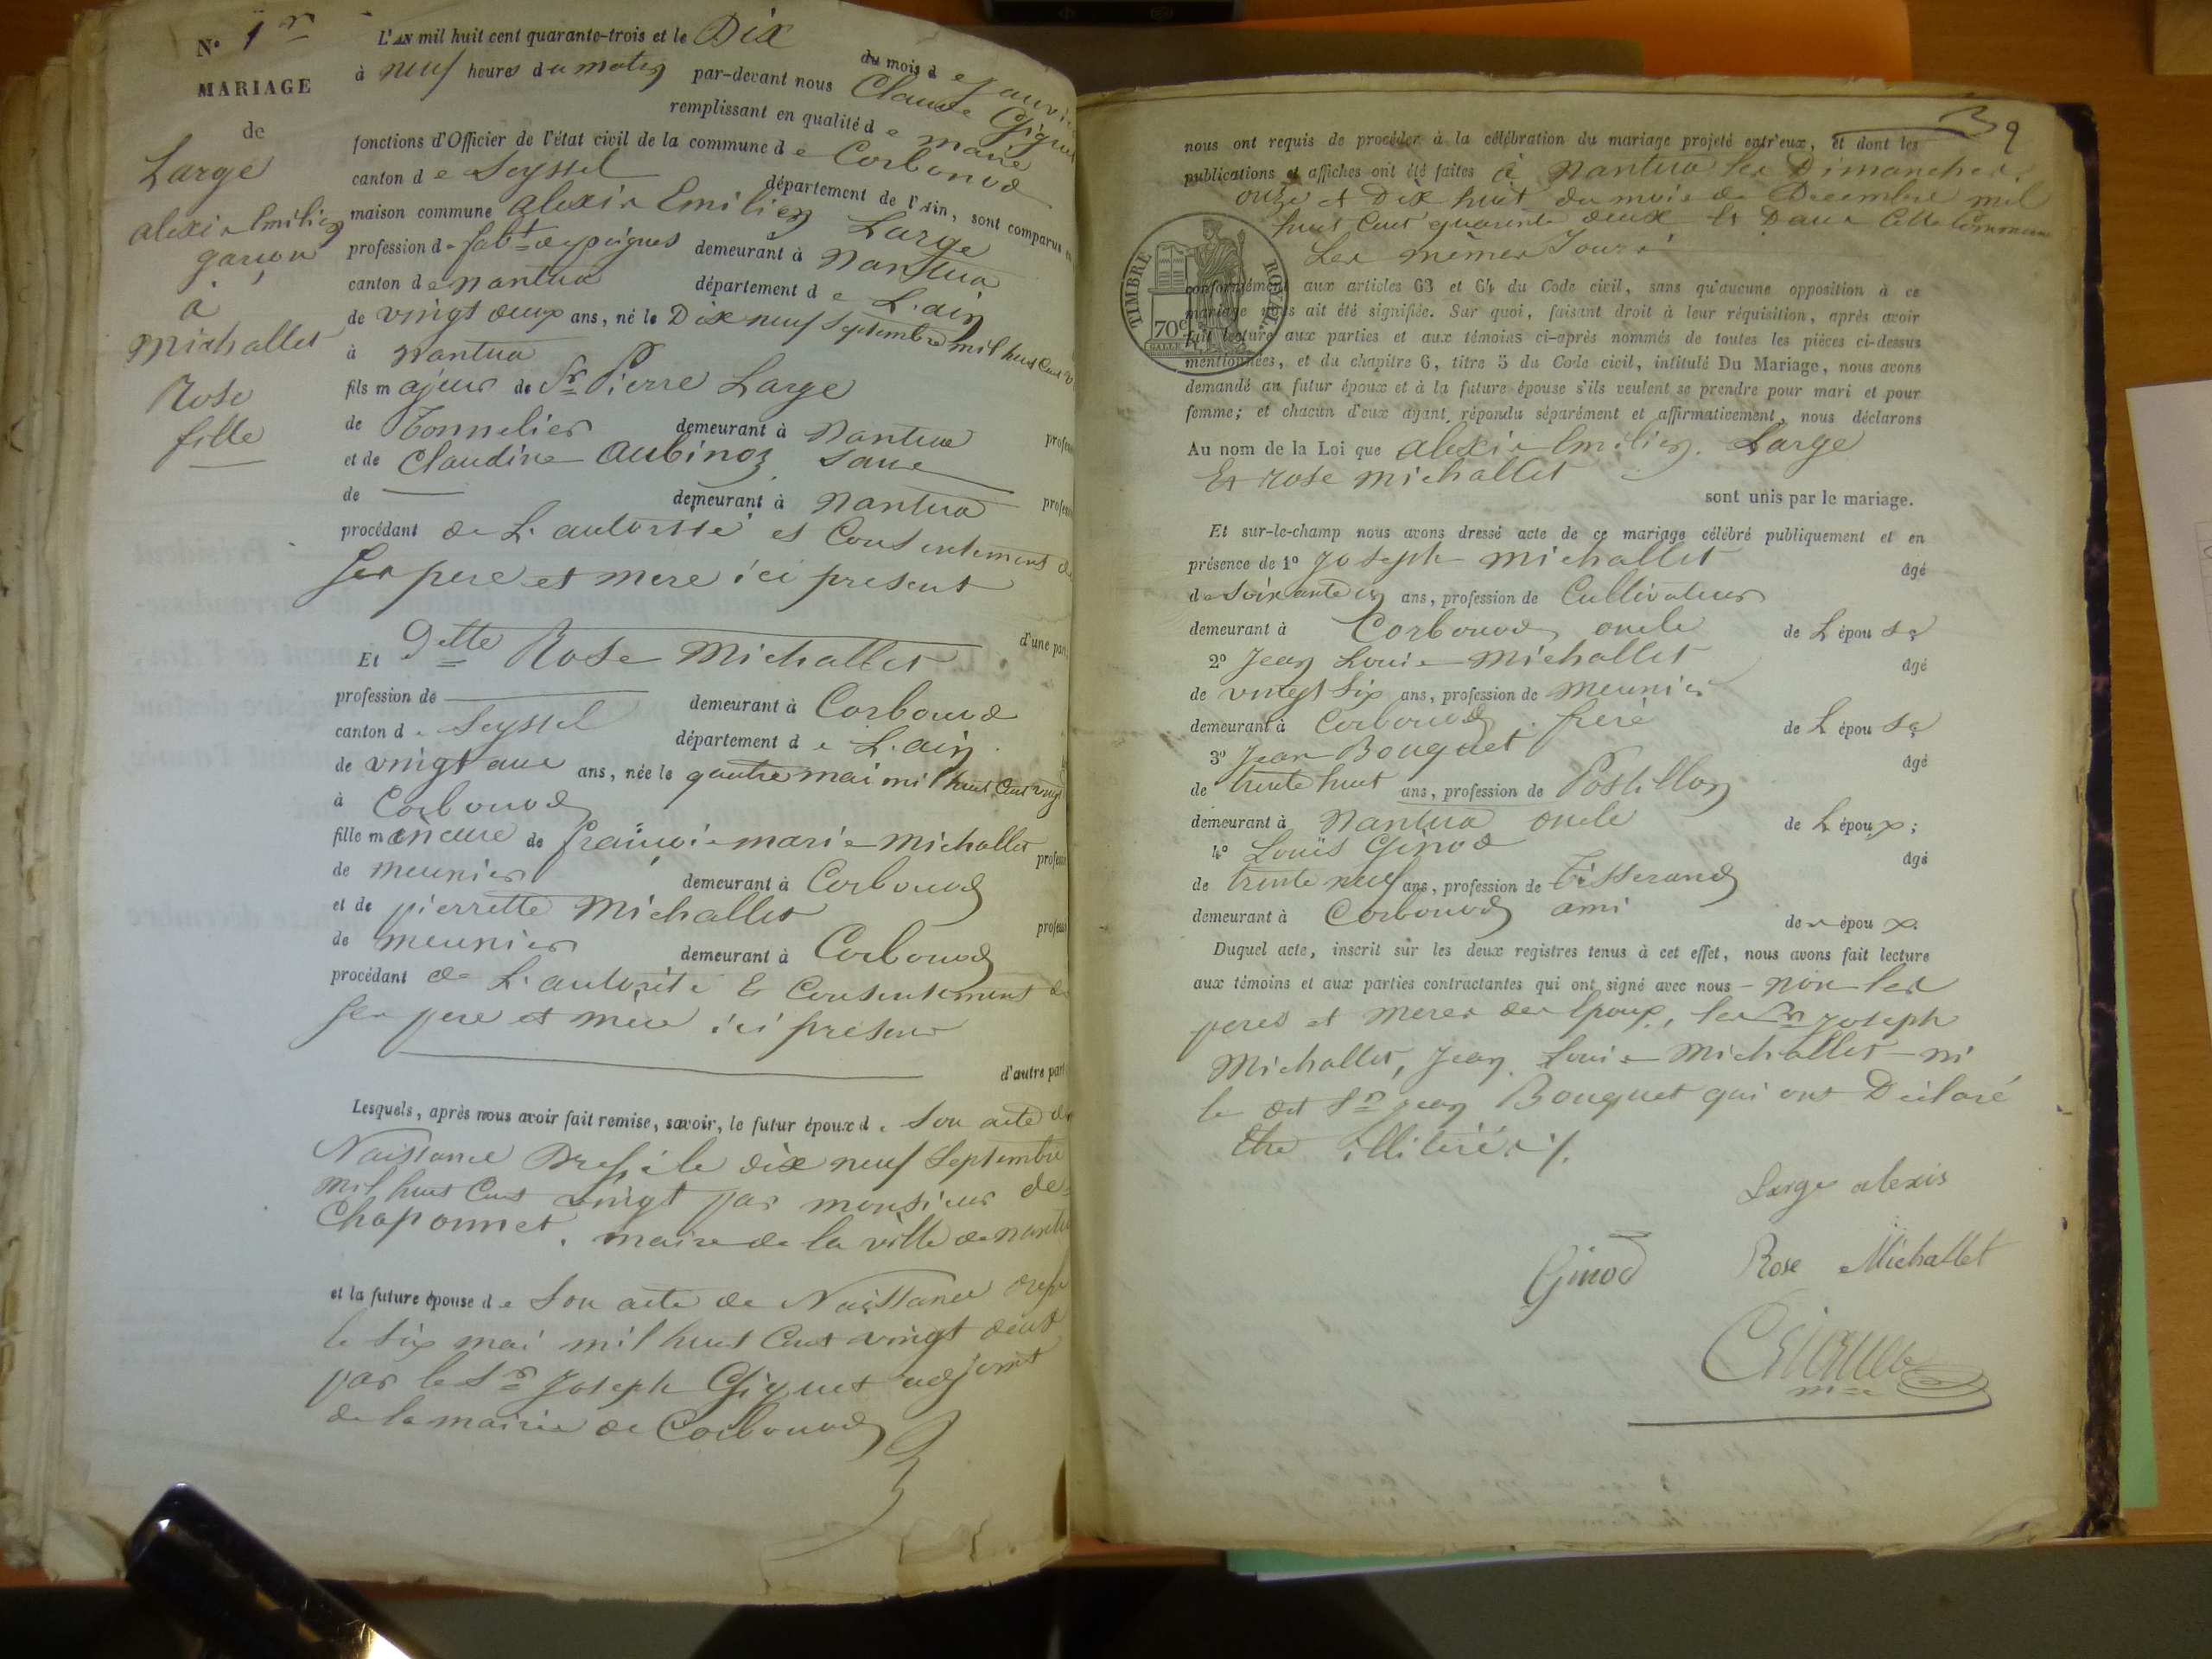 N° 1er
MARIAGE
de
Large
alexis Emilien
garçon
à
Michallet
Rose
fille
L'AN mil huit cent quarante-trois et le Dix du mois de Janvi
à neuf heures du matin par-devant nous Claude Giguet
remplissant en qualité de maire
fonctions d'Officier de l'état civil de la commune de Corbonod
canton de Seyssel département de l'Ain, sont comparus en
maison commune alexis Emilien Large
profession de fabt de peignes demeurant à Nantua
canton de nantua département de L'ain
de vingt deux ans, né le Dix neuf Septembre mil huit Cent v
à Nantua
fils majeur de Sr Pierre Large profes
de Tonnelier demeurant à Nantua
et de Claudine Aubinoz Sans profes
de demeurant à Nantua
procédant de L'autorité et Consentement de
Ses pere et mere ici present
d'une part,
Et Dlle Rose Michallet
profession de demeurant à Corbonod
canton de Seyssel département de L'ain
de vingt deux ans, née le quatre mai mil huit Cent vingt
à Corbonod
fille mineure de françois marie Michallet profess
de meunier demeurant à Corbonod
et de pierrette Michallet profess
de meunier demeurant à Corbonod
procédant de L'autorité & Consentement de
Ses pere et mere ici present
d'autre part
Lesquels, après nous avoir fait remise, savoir, le futur époux de Son acte de
Naissance Dressé le dix neuf Septembre
mil huit Cent vingt par monsieur de
Chaponnet, maire de la ville de nantu
et la future épouse de Son acte de Naissance
le six mai mil huit Cent vingt deux
par le Sr Joseph Giguet adjoint
de la mairie de Corbonod
39
nous ont requis de procéder à la célébration du mariage projeté entr'eux, et dont les
publications et affiches ont été faites à Nantua les Dimanches
onze et Dix huit du mois de Decembre mil
huit Cent quarante deux Et Dans Cette Commune
Les mêmes Jours
TIMBRE ROYAL
70c
conformément aux articles 63 et 64 du Code civil, sans qu'aucune opposition à ce
mariage nous ait été signifiée. Sur quoi, faisant droit à leur réquisition, après avoir
fait lecture aux parties et aux témoins ci-après nommés de toutes les pièces ci-dessus
mentionnées, et du chapitre 6, titre 5 du Code civil, intitulé Du Mariage, nous avons
demandé au futur époux et à la future épouse s'ils veulent se prendre pour mari et pour
femme; et chacun d'eux ayant répondu séparément et affirmativement, nous déclarons
Au nom de la Loi que alexis Emilien Large
Et rose michallet
sont unis par le mariage.
Et sur-le-champ nous avons dressé acte de ce mariage célébré publiquement et en
présence de 1° Joseph Michallet âgé
de soixante ans, profession de Cultivateur
demeurant à Corbonod oncle de L'épouse
2° Jean Louis Michallet âgé
de vingt six ans, profession de meunier
demeurant à Corbonod frère de L'épouse
3° Jean Bouquet âgé
de trente huit ans, profession de Postillon
demeurant à Nantua oncle de L'époux;
4° Louis Ginod âgé
de trente neuf ans, profession de Tisserand
demeurant à Corbonod ami des époux.
Duquel acte, inscrit sur les deux registres tenus à cet effet, nous avons fait lecture
aux témoins et aux parties contractantes qui ont signé avec nous - non les
peres et meres des Epoux, les Srs Joseph
Michallet, Jean Louis Michallet ni
le dit Sr jean Bouquet qui ont Déclaré
être illitérés ./.
Large alexis
Ginod Rose Michallet
Giguet
mre